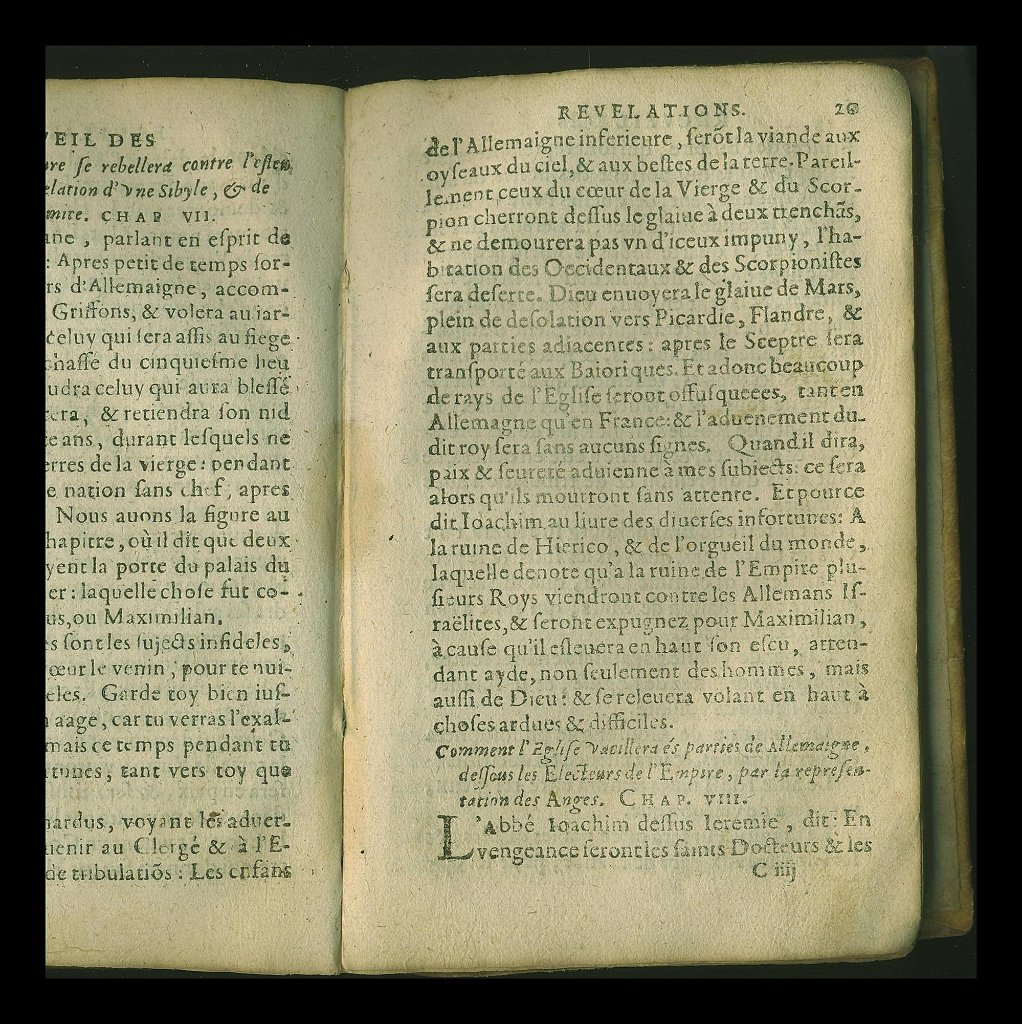 VEIL DES
re se rebellera contre l'esleu
elation d'vne Sibyle, & de
mite. CHAP VII.
ne, parlant en esprit de
: Apres petit de temps sor-
rs d'Allemaigne, accom-
Griffons, & volera au iar-
celuy qui sera assis au siege
hassé du cinquiesme lieu
udra celuy qui aura blessé
era, & retiendra son nid
te ans, durant lesquels ne
erres de la vierge: pendant
e nation sans chef, apres
Nous auons la figure au
hapitre, où il dit que deux
yent la porte du palais du
er: laquelle chose fut co-
us, ou Maximilian.
s sont les sujects infideles,
œur le venin, pour te nui-
eles. Garde toy bien ius-
aage, car tu verras l'exal-
mais ce temps pendant tu
tunes, tant vers toy que
nardus, voyant les aduer-
uenir au Clergé & à l'E-
de tribulatiõs: Les enfans
REVELATIONS. 20
de l'Allemaigne inferieure, serõt la viande aux
oyseaux du ciel, & aux bestes de la terre. Pareil-
lement ceux du cœur de la Vierge & du Scor-
pion cherront dessus le glaiue à deux trenchãs,
& ne demourera pas vn d'iceux impuny, l'ha-
bitation des Occidentaux & des Scorpionistes
sera deserte. Dieu enuoyera le glaiue de Mars,
plein de desolation vers Picardie, Flandre, &
aux parties adiacentes: apres le Sceptre sera
transporté aux Baioriques. Et adonc beaucoup
de rays de l'Eglise seront offusqueees, tant en
Allemagne qu'en France: & l'aduenement du-
dit roy sera sans aucuns signes. Quand il dira,
paix & seureté aduienne à mes subiects: ce sera
alors qu'ils mourront sans attente. Et pource
dit Ioachim au liure des diuerses infortunes: A
la ruine de Hierico, & de l'orgueil du monde,
laquelle denote qu'a la ruine de l'Empire plu-
sieurs Roys viendront contre les Allemans Is-
raëlites, & seront expugnez pour Maximilian,
à cause qu'il esleuera en haut son escu, atten-
dant ayde, non seulement des hommes, mais
aussi de Dieu: & se releuera volant en haut à
choses ardues & difficiles.
Comment l'Eglise vacillera és parties de Allemaigne,
dessous les Electeurs de l'Empire, par la represen-
tation des Anges. CHAP. VIII.
L'Abbé Ioachim dessus Ieremie, dit: En
vengeance seront les saints Docteurs & les
C iiij